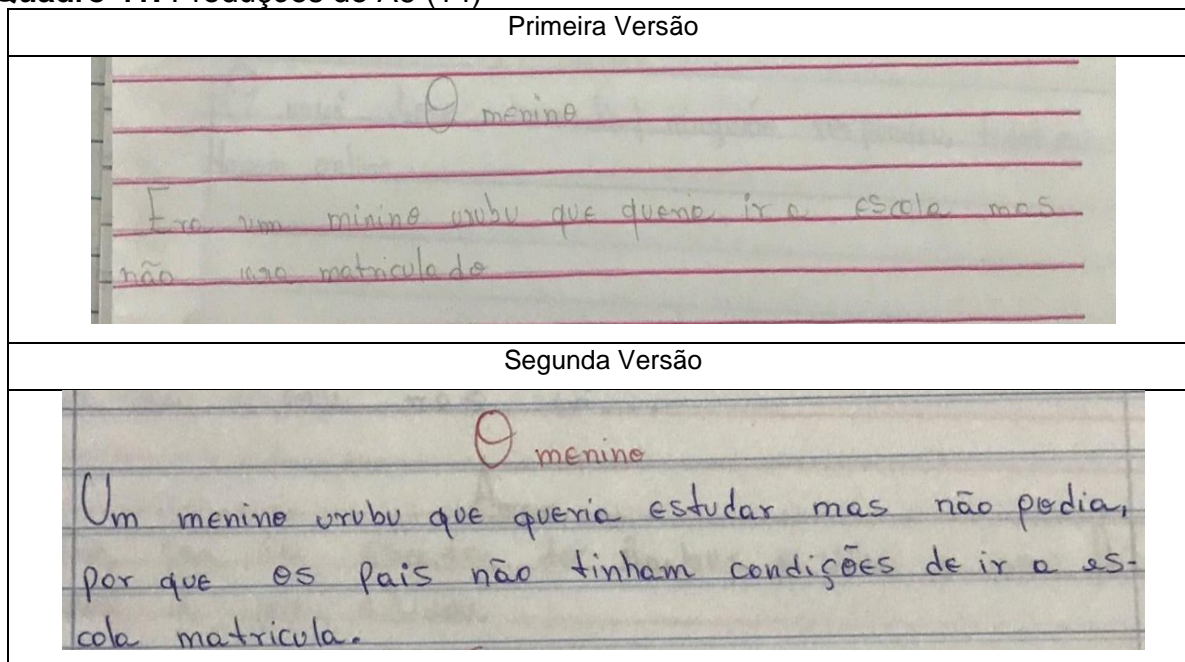 Primeira Versão
O menino
Era um minino urubu que queria ir a escola mas
não era matriculado
Segunda Versão
O menino
Um menino urubu que queria estudar mas não podia,
por que os pais não tinham condições de ir a es-
cola matricula.